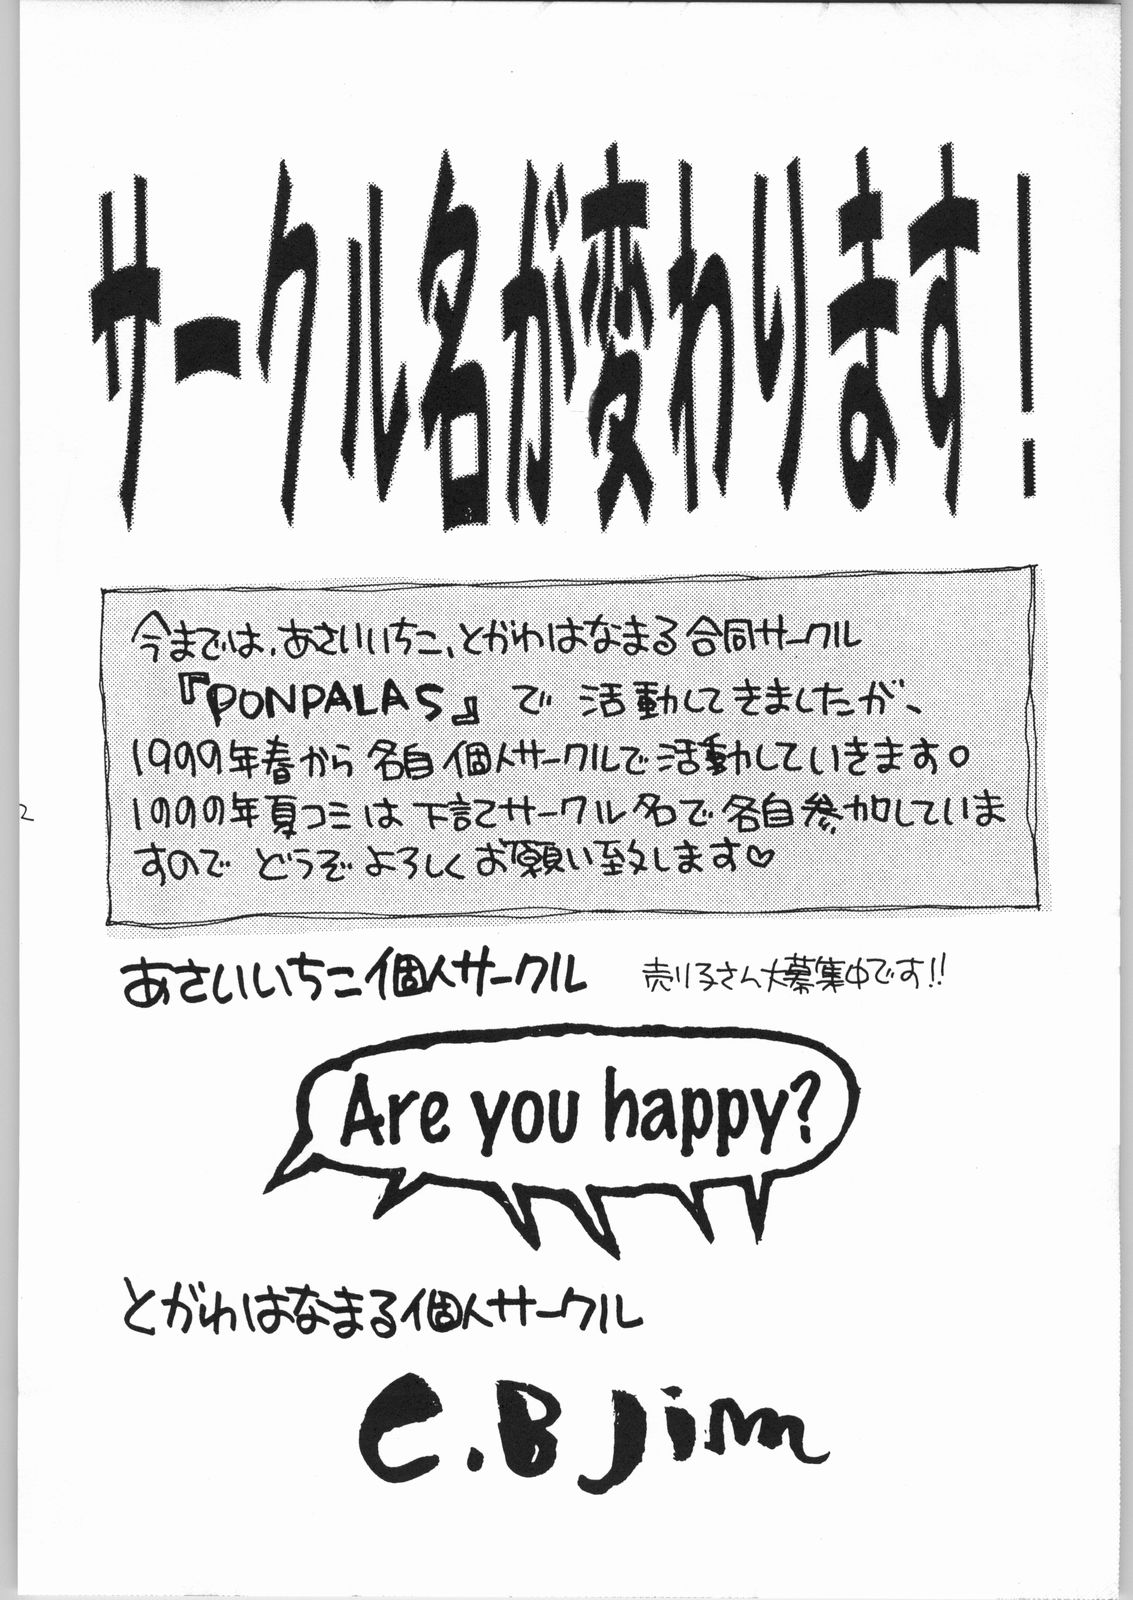 サークル名が変わります!
今までは、あさいいちこ、とがわはなまる合同サークル
『PONPALAS』で活動してきましたが、
1999年春から各自個人サークルで活動していきます。
1999年夏コミは下記サークル名で各自参加していま
すのでどうぞよろしくお願い致します♡
2
あさいいちこ個人サークル 売り子さん大募集中です!!
Are you happy?
とがわはなまる個人サークル
C.B Jim